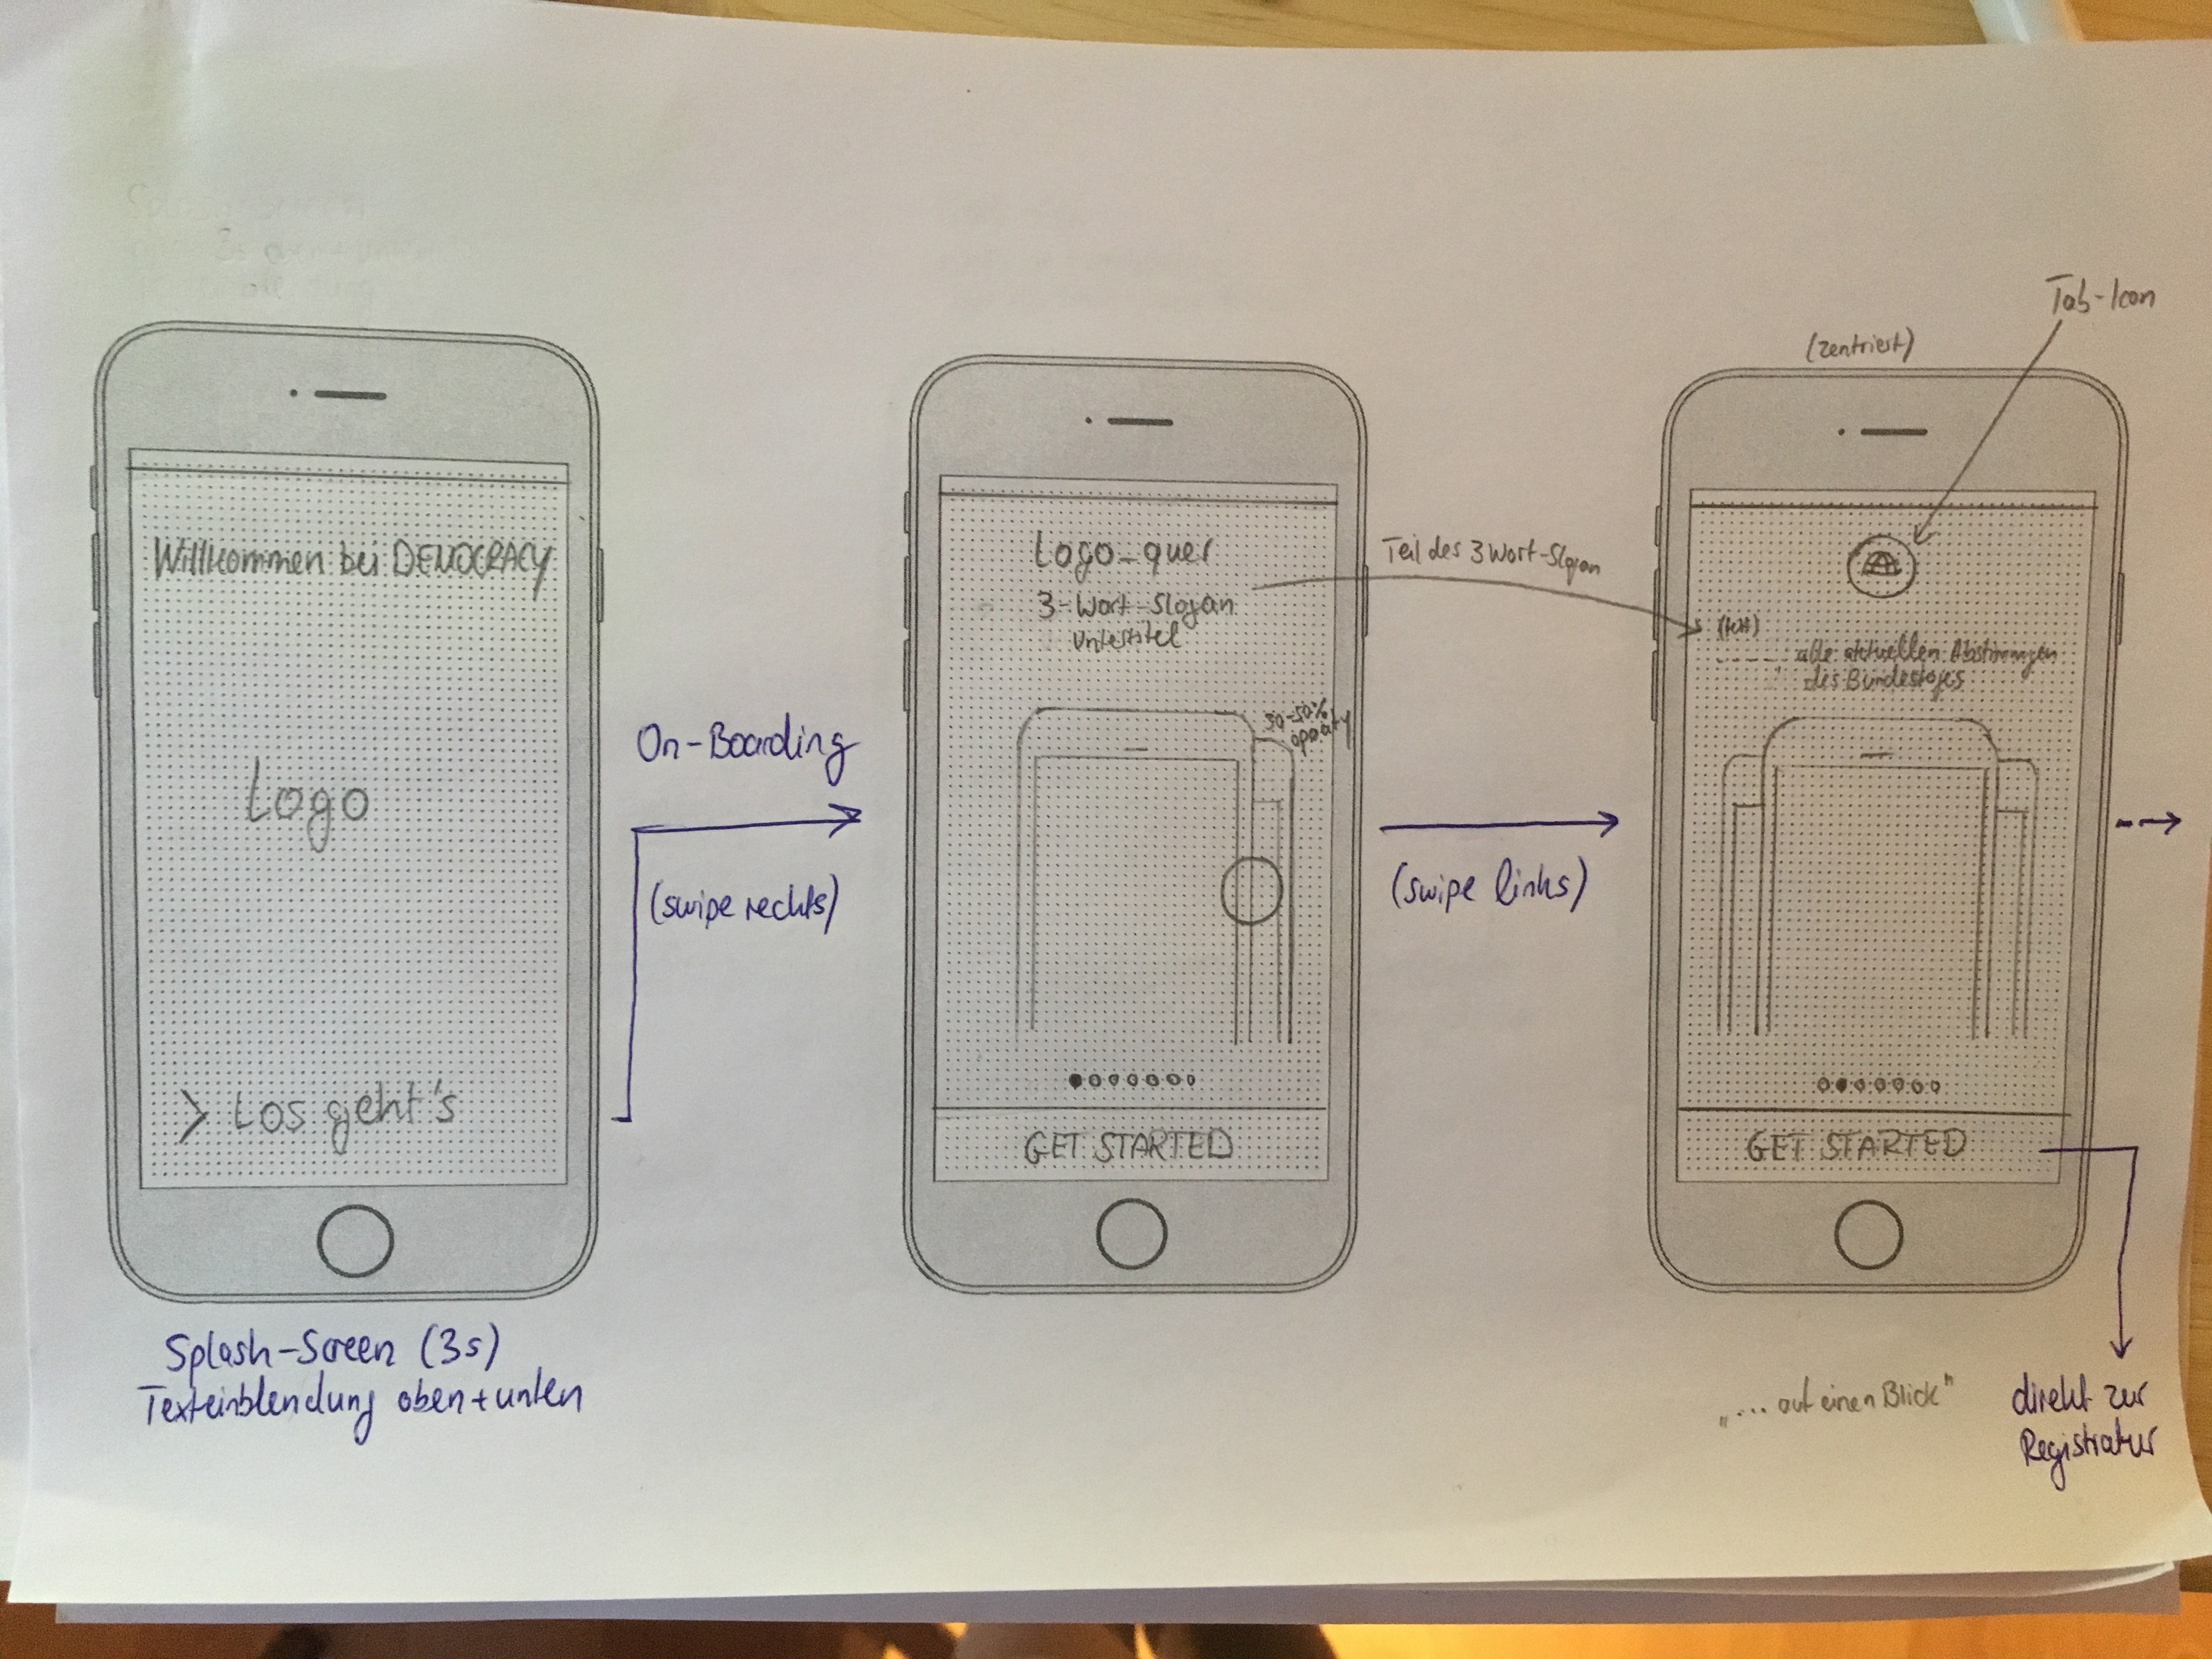 Willkommen bei DEMOCRACY
Logo
> Los geht's
Splash-Screen (3s)
Texteinblendung oben + unten
On-Boarding
(swipe rechts)
Logo_quer
3-Wort-Slogan
Untertitel
opacity
GET STARTED
Teil des 3 Wort-Slogan
(swipe links)
(zentriert)
Tab-Icon
alle aktuellen Abstimmungen
des Bundestages
GET STARTED
"... auf einen Blick"
direkt zur
Registratur